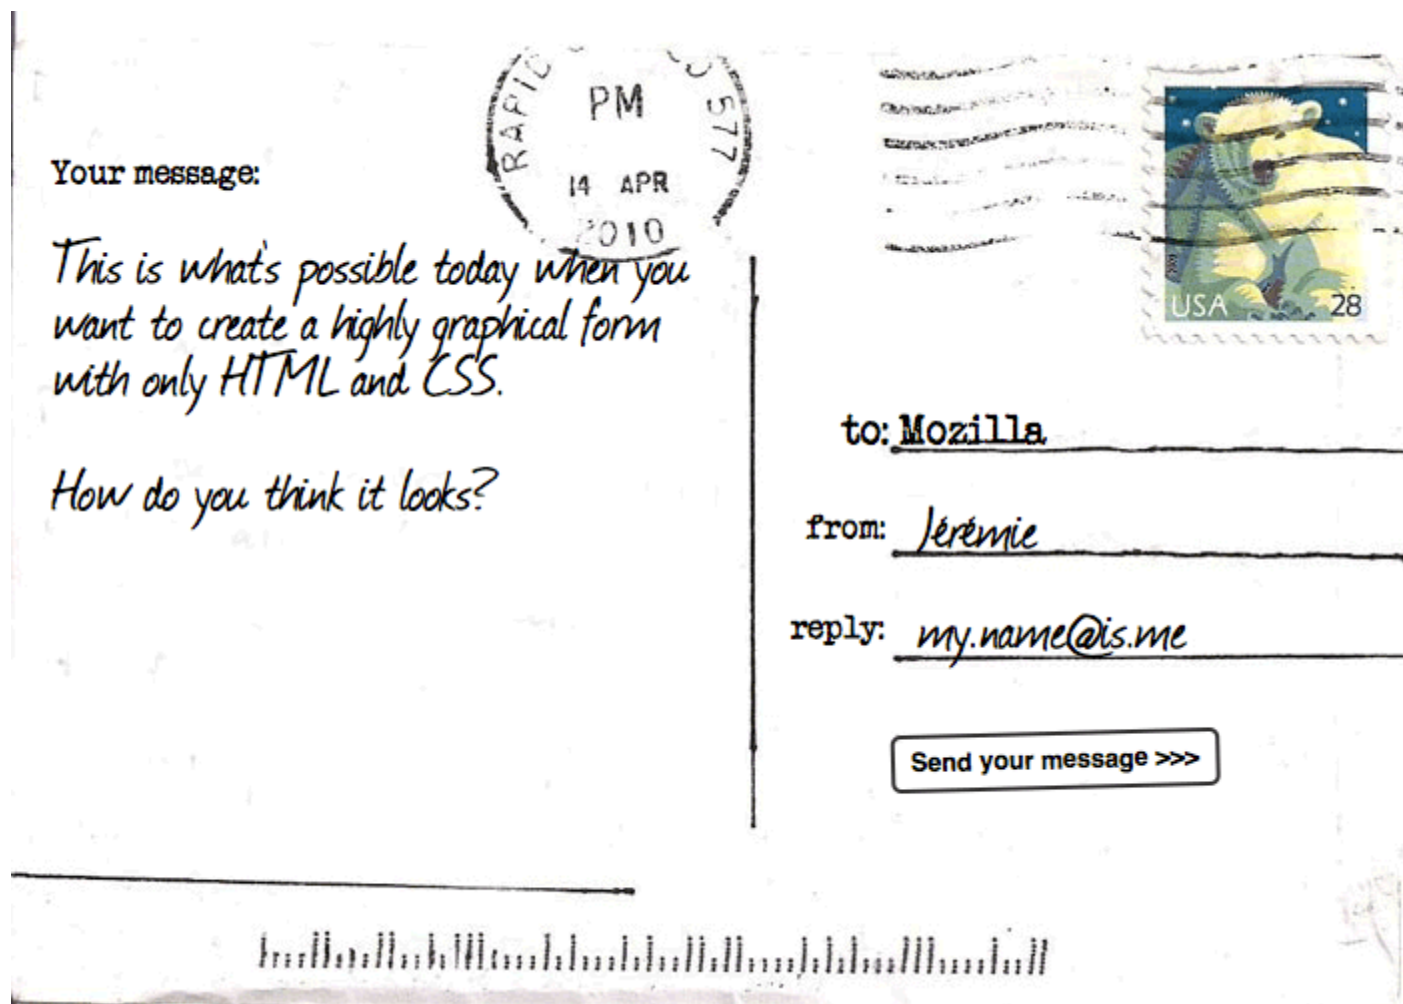 PM
577
14 APR
2010
USA 28
Your message:
This is what's possible today when you
want to create a highly graphical form
with only HTML and CSS.
How do you think it looks?
to: Mozilla
from: Jérémie
reply: my.name@is.me
Send your message >>>